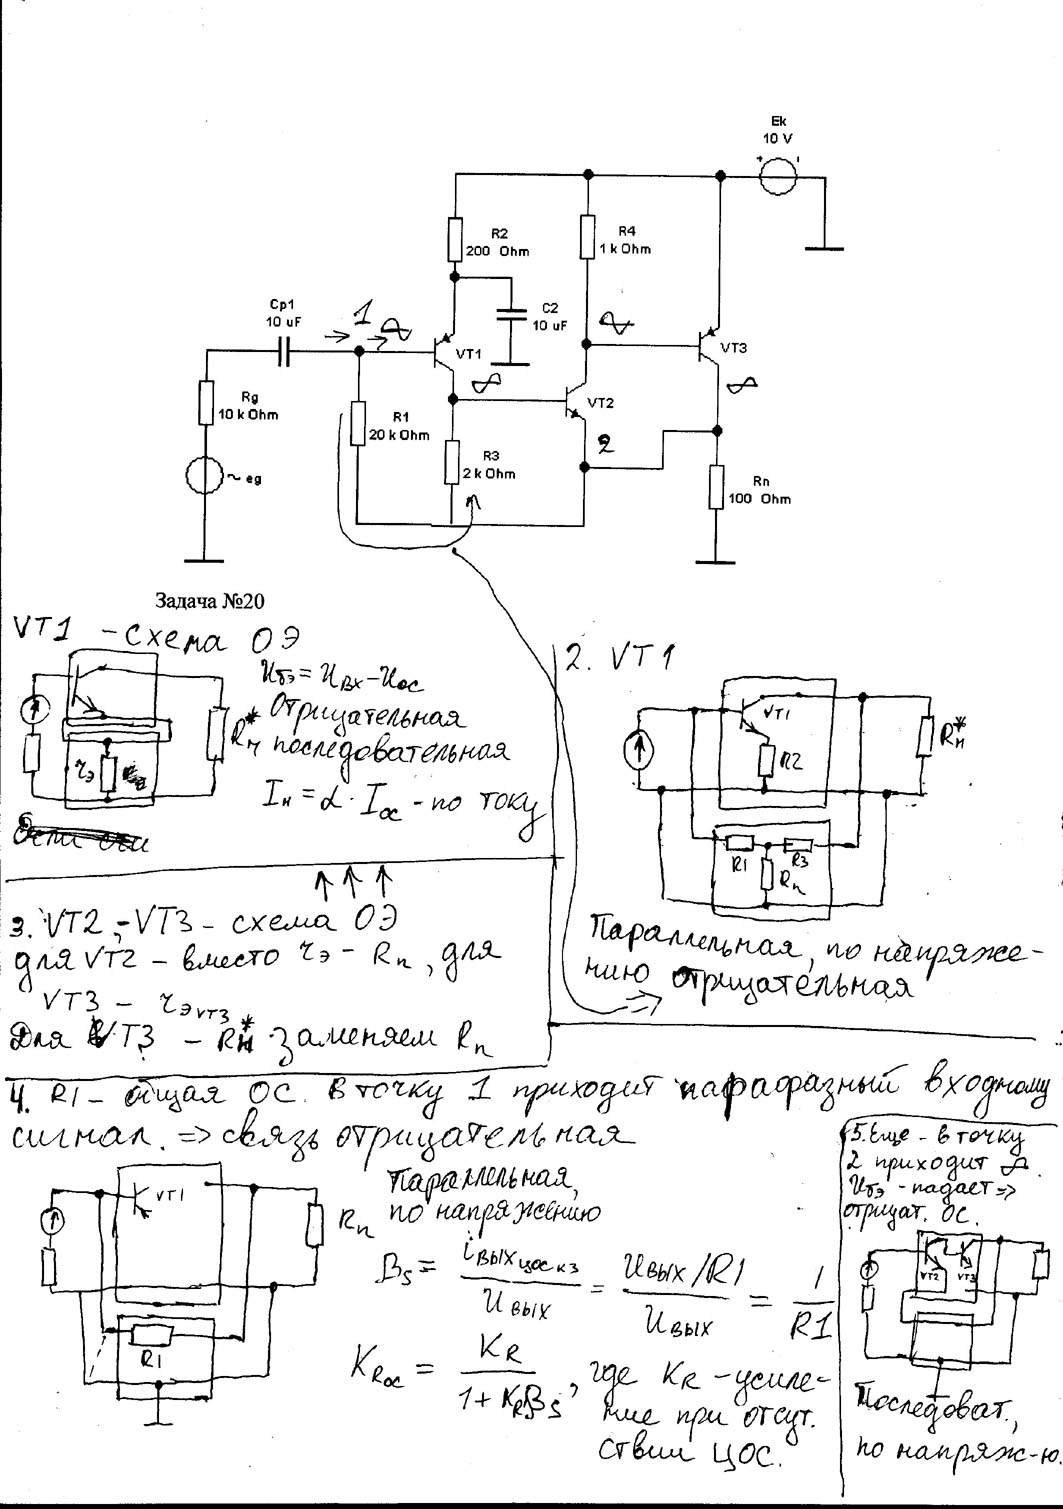 Ek
10 V
R2
200 Ohm
R4
1 k Ohm
Cp1
10 uF
1
C2
10 uF
VT1
VT3
Rg
10 k Ohm
VT2
R1
20 k Ohm
2
R3
2 k Ohm
eg
Rn
100 Ohm
Задача №20
VT1 - схема ОЭ
Uбэ = Uвх - Uос
Отрицательная
Rн* последовательная
rэ
Iн = α · Iос - по току
2. VT1
VT1
R2
Rн*
R1
R3
Rn
Параллельная, по напряже-
нию отрицательная
3. VT2, -VT3 - схема ОЭ
для VT2 - вместо rэ - Rn, для
VT3 - rэVT3
Для VT3 - Rн* заменяем Rn
4. R1 - общая ОС. В точку 1 приходит парафазный входному
сигнал. => связь отрицательная
VT1
Rn
R1
Параллельная,
по напряжению
Bs = iвых цос кз / Uвых = Uвых/R1 / Uвых = 1 / R1
KRос = KR / 1 + KRBs, где KR - усиле-
ние при отсут.
ствии ЦОС.
5. Еще - в точку
2 приходит
Uбэ - падает =>
отрицат. ОС.
VT2
VT3
Последоват.,
по напряж-ю.